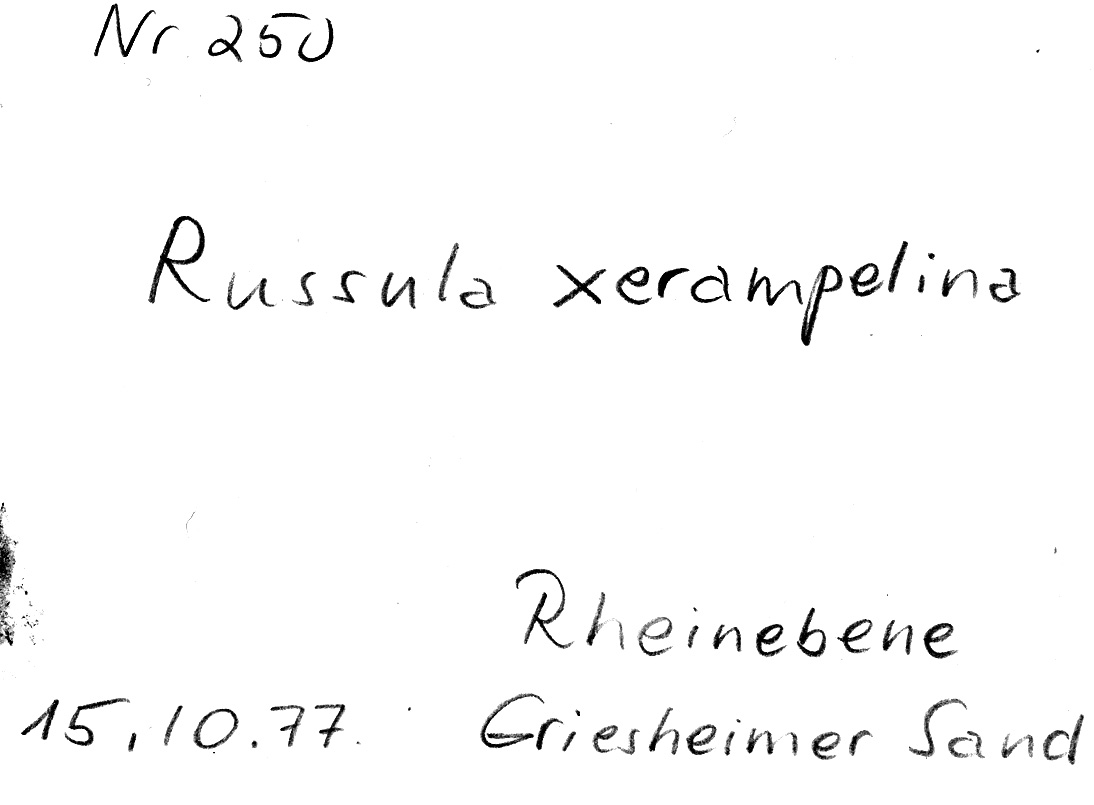 Nr 250
Russula xerampelina
Rheinebene
15.10.77. Griesheimer Sand